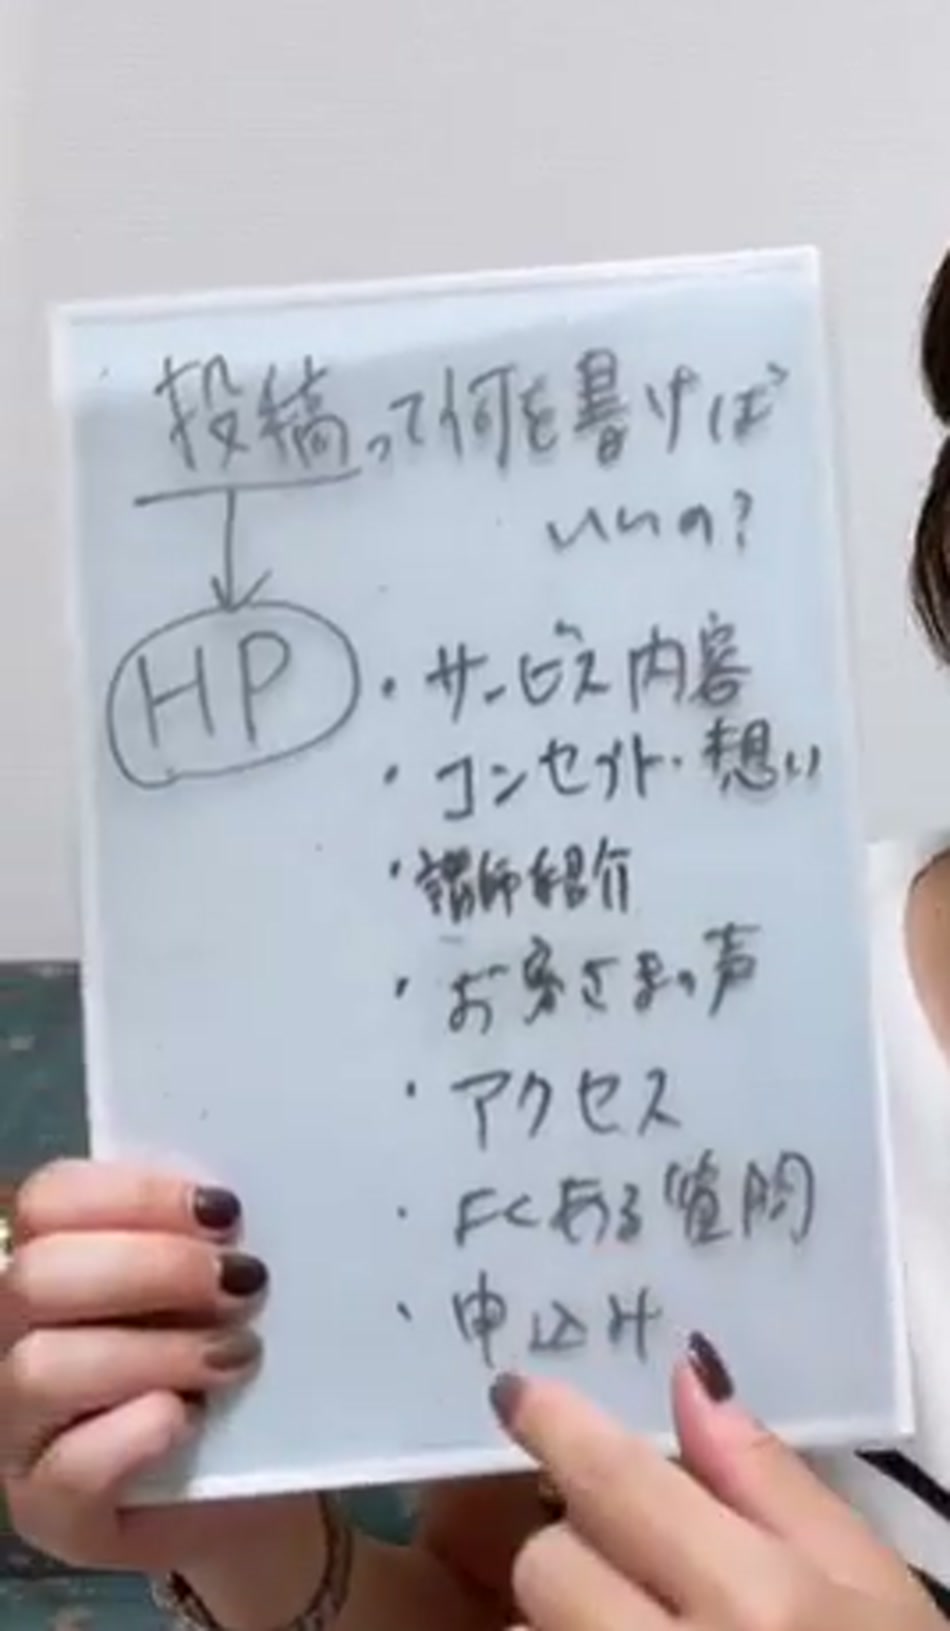 投稿って何を書けば
いいの?
HP
・サービス内容
・コンセプト・想い
・講師紹介
・お客さまの声
・アクセス
・よくある質問
・申込み